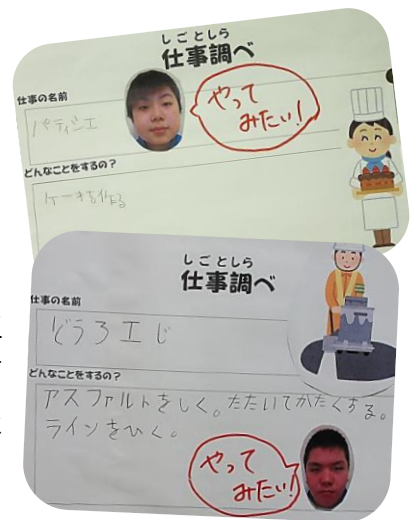 しごとしら
仕事調べ
仕事の名前
パティシエ
やって
みたい!
どんなことをするの?
ケーキを作る
しごとしら
仕事調べ
仕事の名前
どうろエじ
どんなことをするの?
アスファルトをしく。たたいてかたくする。
ラインをひく。
やって
みたい!